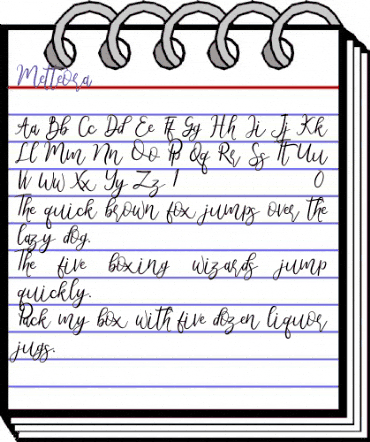 Metteora
Aa Bb Cc Dd Ee Ff Gg Hh Ii Jj Kk
Ll Mm Nn Oo Pp Qq Rr Ss Tt Uu
Vv Ww Xx Yy Zz 1 0
The quick brown fox jumps over the
lazy dog.
The five boxing wizards jump
quickly.
Pack my box with five dozen liquor
jugs.